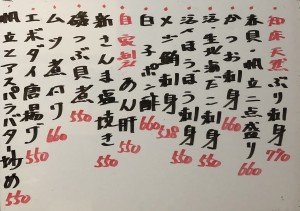 知床天然ぶり刺身 770
貝 帆立二点盛り
かつお刺身 660
活〆北海だこ刺身 550
活〆ほうぼう刺身 550
メジ鮪刺身 528
白子ポン酢 660
自家製あん肝 550
新さんま塩焼き 550
磯つぶ貝煮 550
ムツ煮付 660
エボダイ唐揚げ 550
帆立とアスパラバター炒め 550